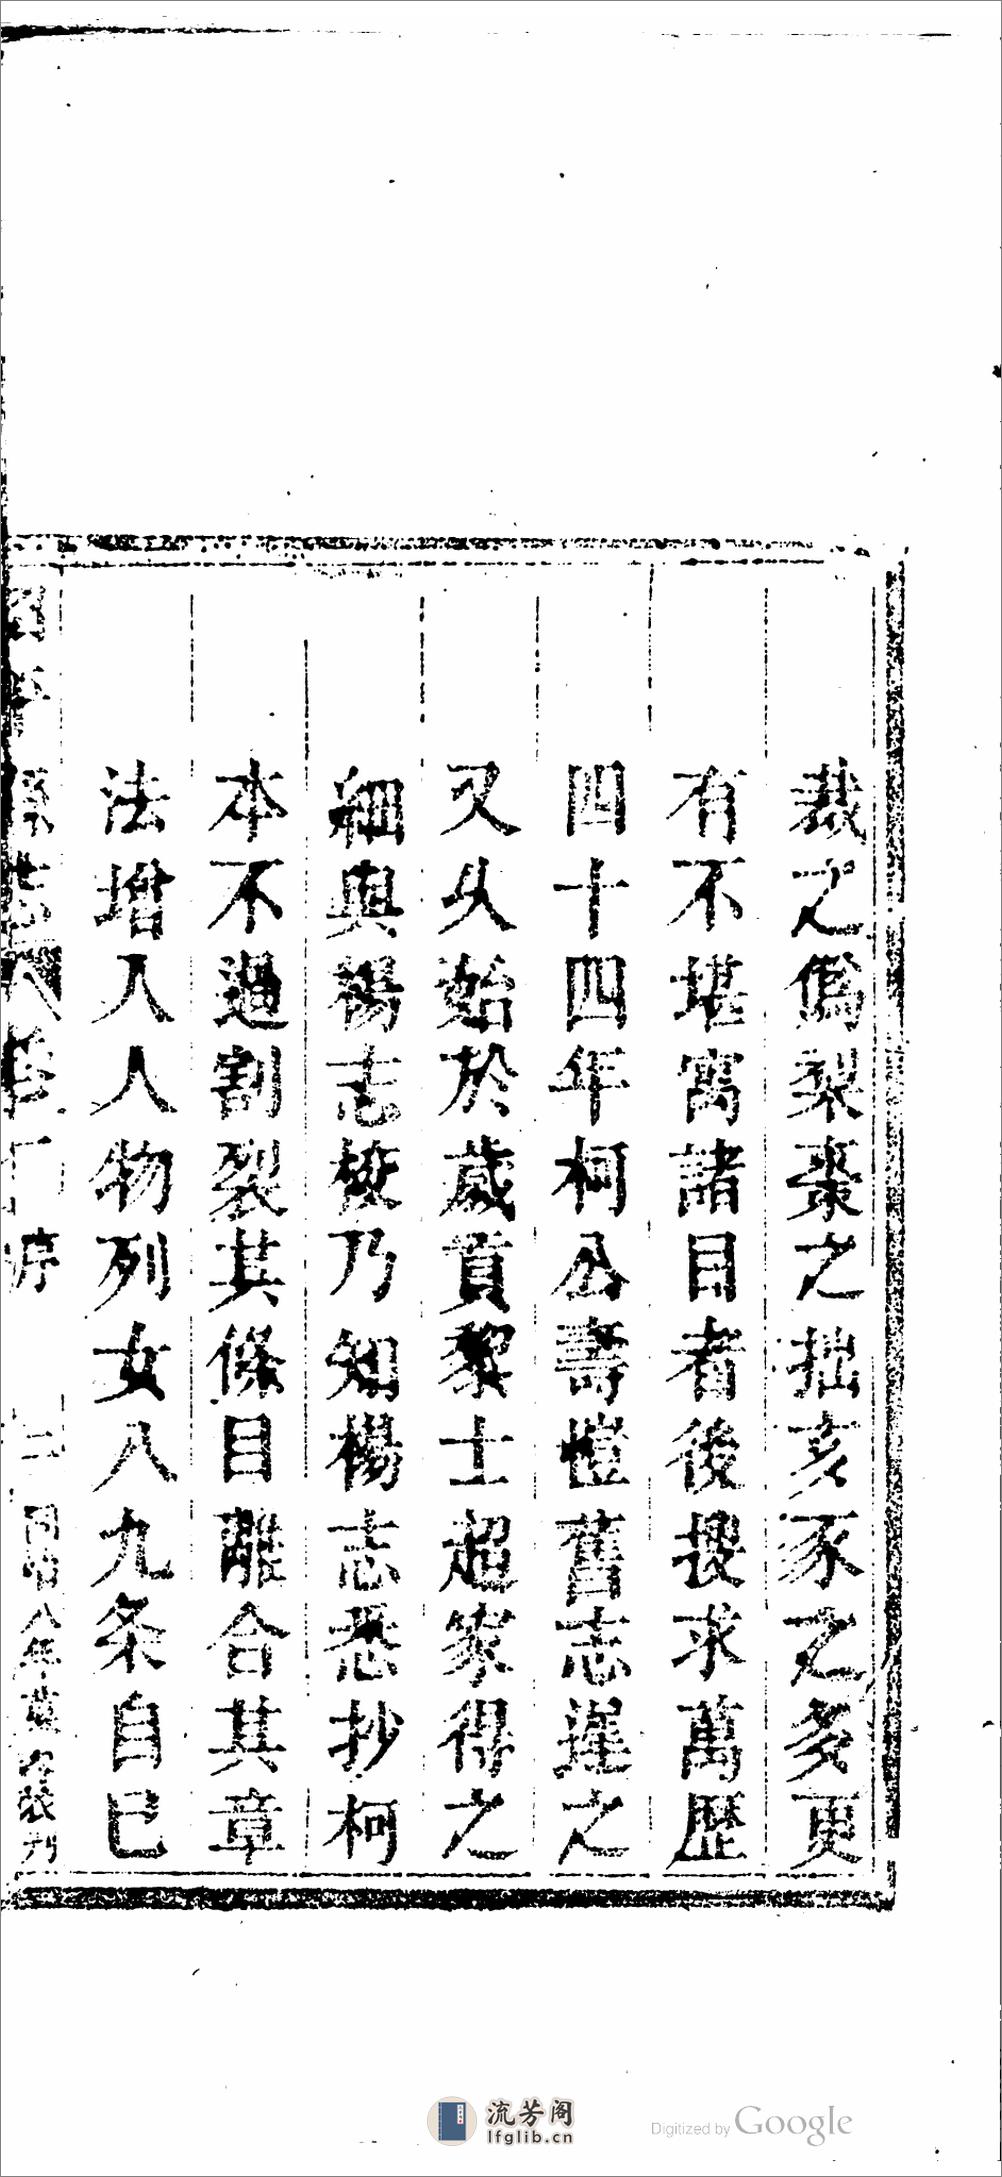 裁之僞梨棗之拙亥豕之多更
有不堪寓諸目者後搜求萬歷
四十四年柯公壽愷舊志遲之
又久始於歲貢黎士超家得之
細與楊志校乃知楊志悉抄柯
本不過割裂其條目離合其章
法增入人物列女八九条自己
序 二 同治八年 刋
流芳阁
lfglib.cn
Digitized by Google